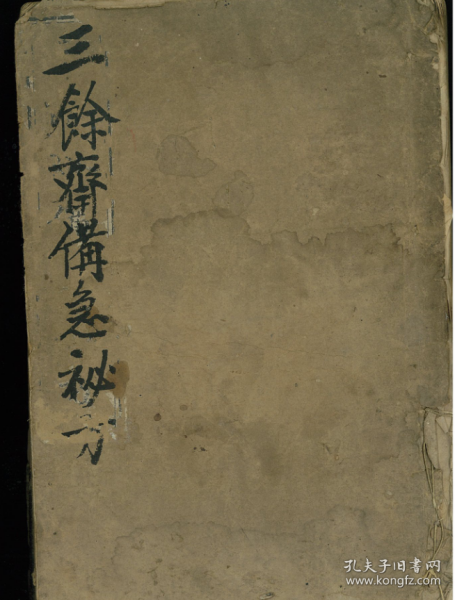 三餘齋備急祕方
孔夫子旧书网
www.kongfz.com